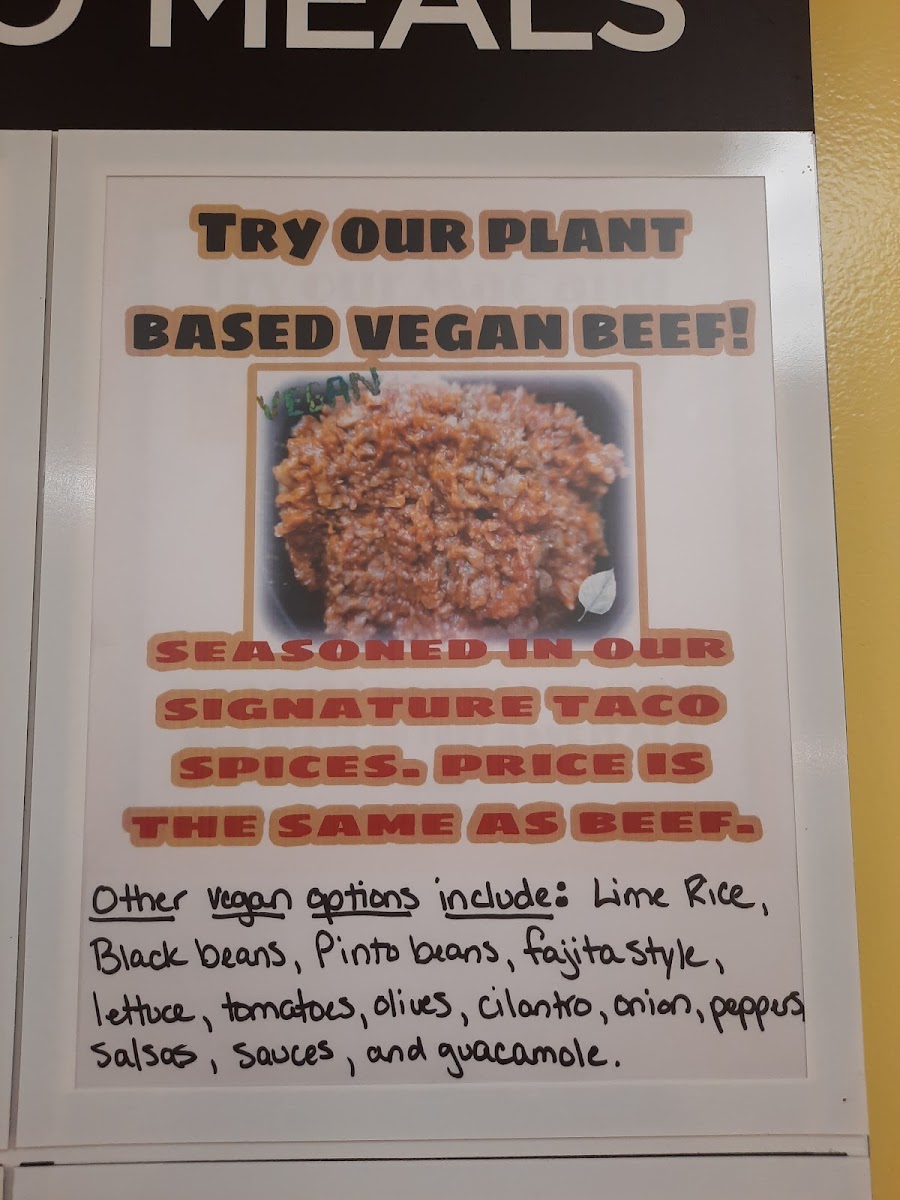 MEALS
TRY OUR PLANT
BASED VEGAN BEEF!
VEGAN
SEASONED IN OUR
SIGNATURE TACO
SPICES. PRICE IS
THE SAME AS BEEF.
Other vegan options include: Lime Rice,
Black beans, Pinto beans, fajita style,
lettuce, tomatoes, olives, cilantro, onion, peppers
salsas, sauces, and guacamole.